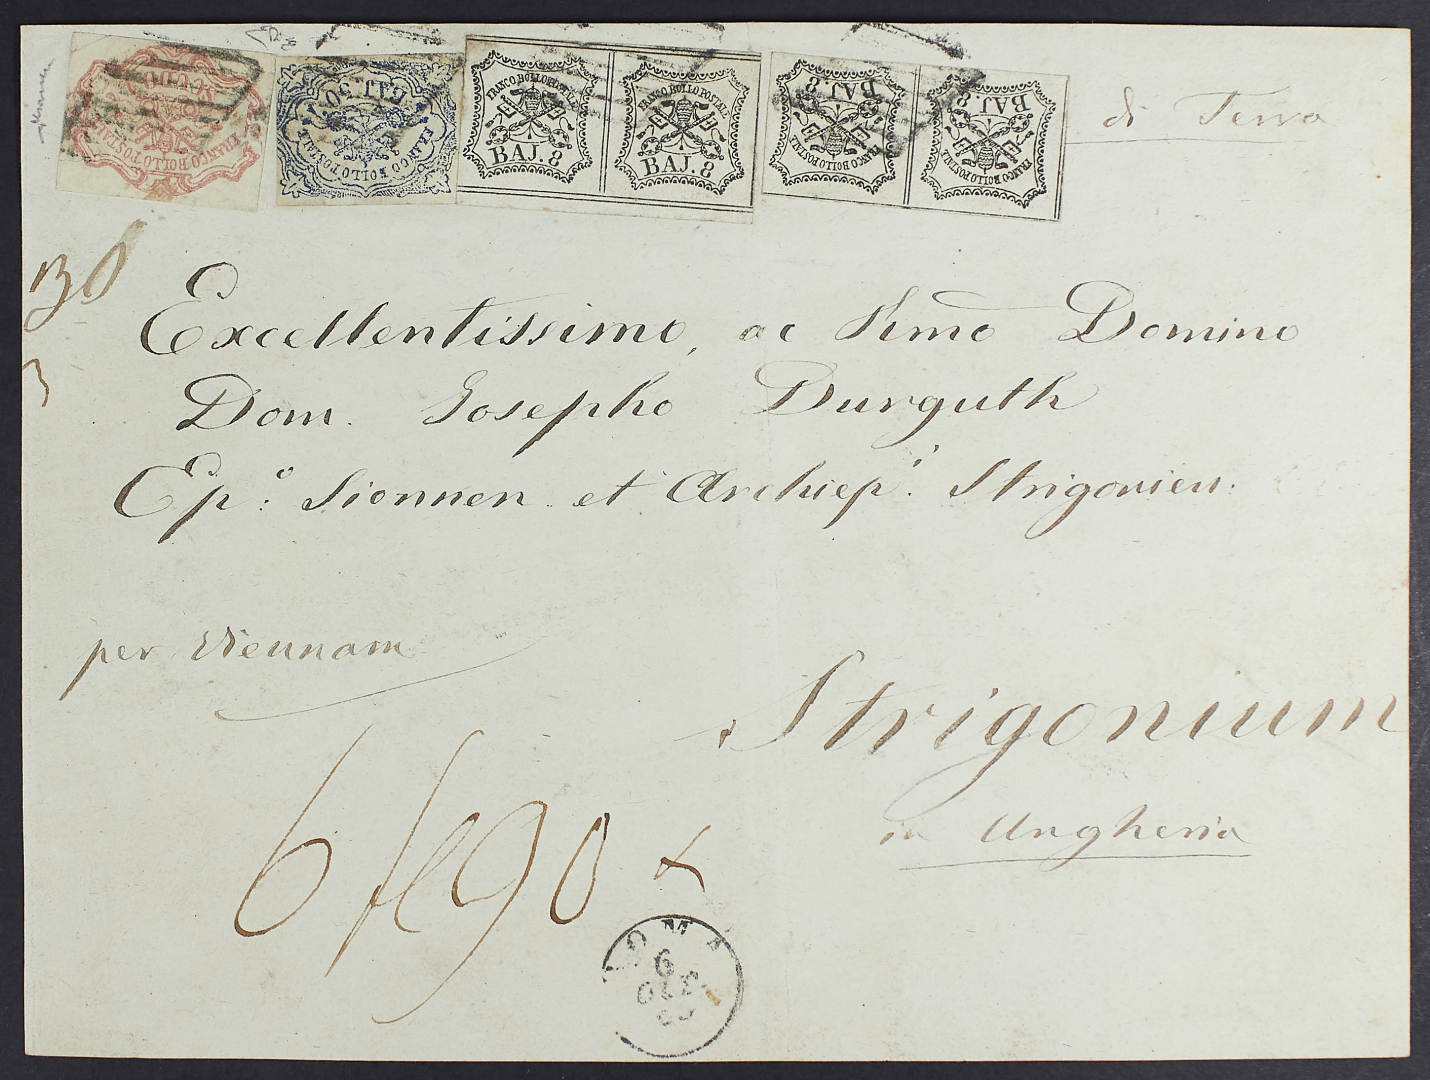 SCUDO
FRANCO BOLLO POSTALE
BAJ. 50
FRANCO BOLLO POSTALE
FRANCO BOLLO POSTALE
BAJ. 8
FRANCO BOLLO POSTALE
BAJ. 8
FRANCO BOLLO POSTALE
BAJ. 8
FRANCO BOLLO POSTALE
BAJ. 8
di Terra
130
3
Excellentissimo, ac Rmõ Domino
Dom. Josepho Durguth
Epº: Sionnen et Archiep: Strigonien.
per Viennam
Strigonium
in Ungheria
6 fl 90 x
ROMA
6
OTT.